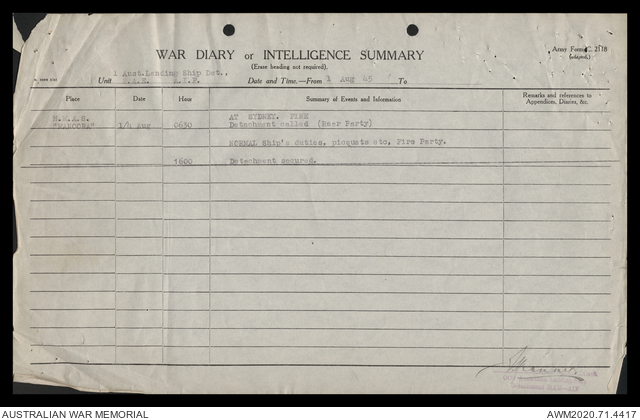 WAR DIARY or INTELLIGENCE SUMMARY
(Erase heading not required).
Army Form C. 2118
(adapted.)
1 Aust.Landing Ship Det.,
Unit R.A.E. A.I.F. Date and Time.—From 1 Aug 45 To
Place Date Hour Summary of Events and Information Remarks and references to
Appendices, Diaries, &c.
AT SYDNEY. FINE
"MANOORA" 1/4 Aug 0630 Detachment called (Rear Party)
NORMAL Ship's duties, picquets etc, Fire Party.
1600 Detachment secured.
AUSTRALIAN WAR MEMORIAL AWM2020.71.4417